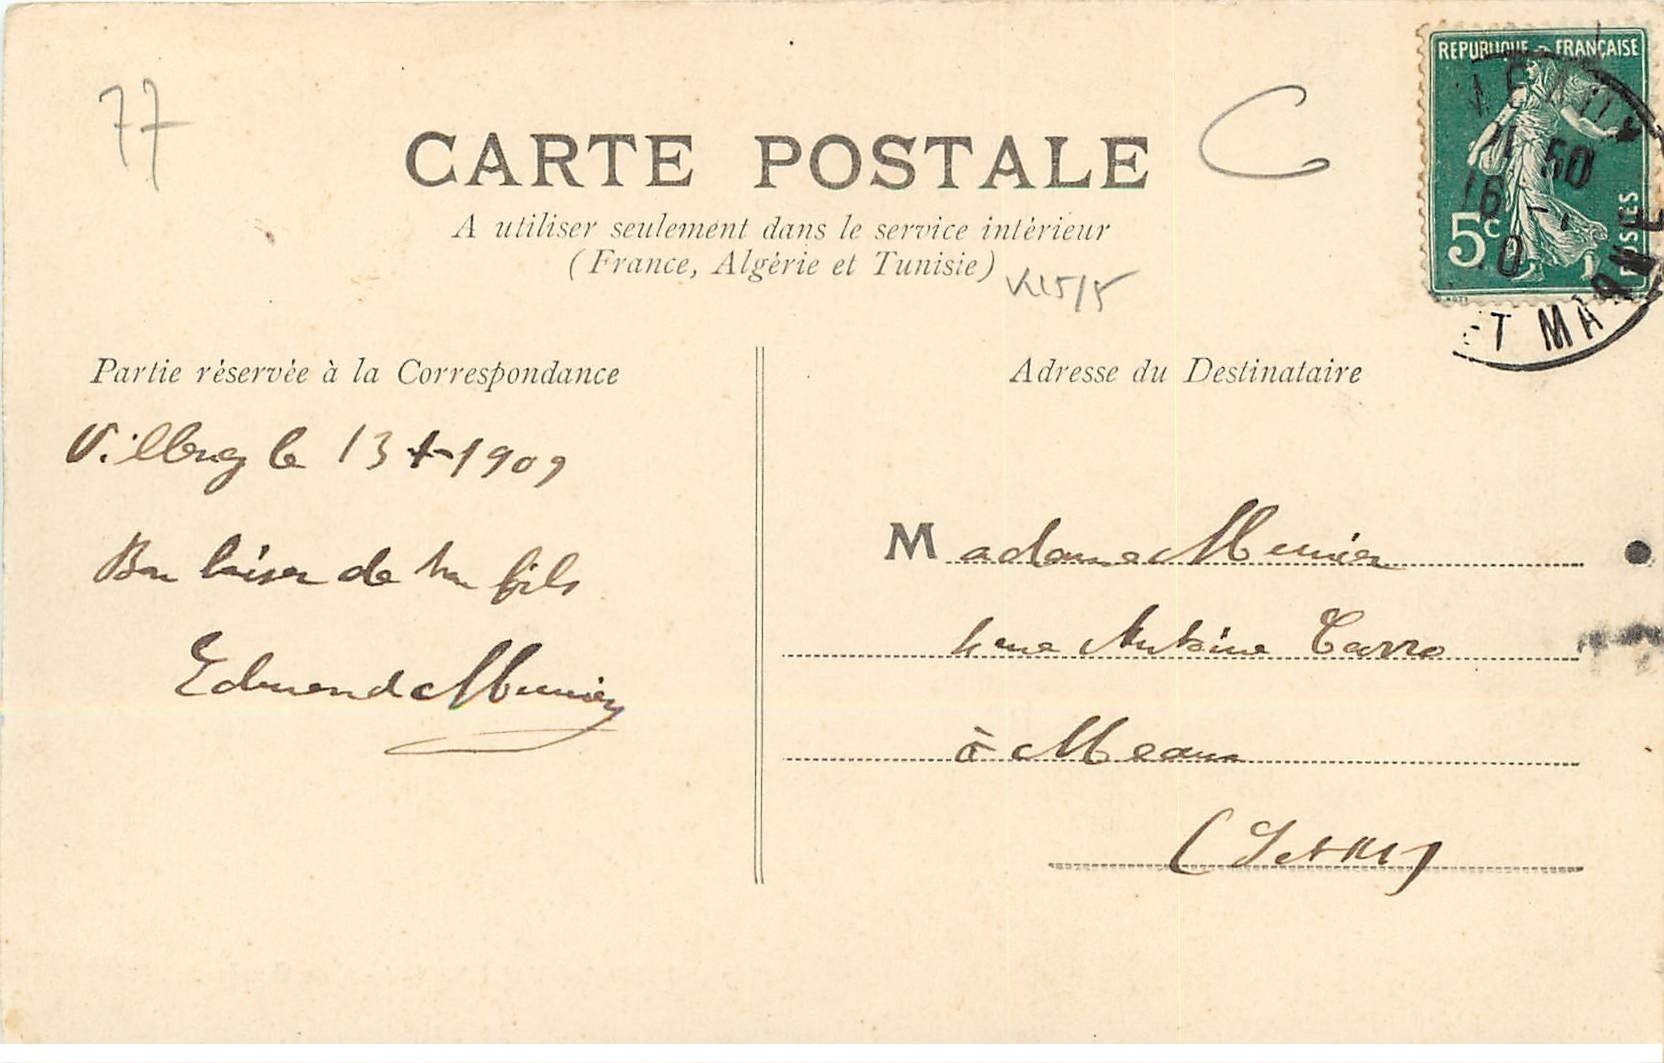 77
CARTE POSTALE
C
A utiliser seulement dans le service intérieur
(France, Algérie et Tunisie)
REPUBLIQUE FRANÇAISE
5c
POSTES
MEAUX
11 50
16
10
ET MARNE
Partie réservée à la Correspondance
le 13 X 1909
Bon baiser de ton fils
Edmond Munier
Adresse du Destinataire
Madame Munier
rue Antoine Carro
à Meaux
(S et M)